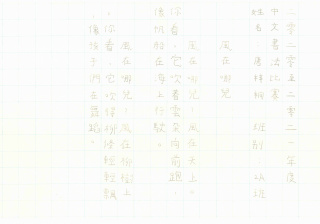 二零二零至二零二一年度
中文書法比賽
姓名： 班別：
風在哪兒
風在哪兒，風在天上。
你看，它吹着雲向前跑，
像帆船在海上行駛。
風在哪兒，風在樹上
你看，它吹得樹枝輕輕
像孩子們在舞蹈。